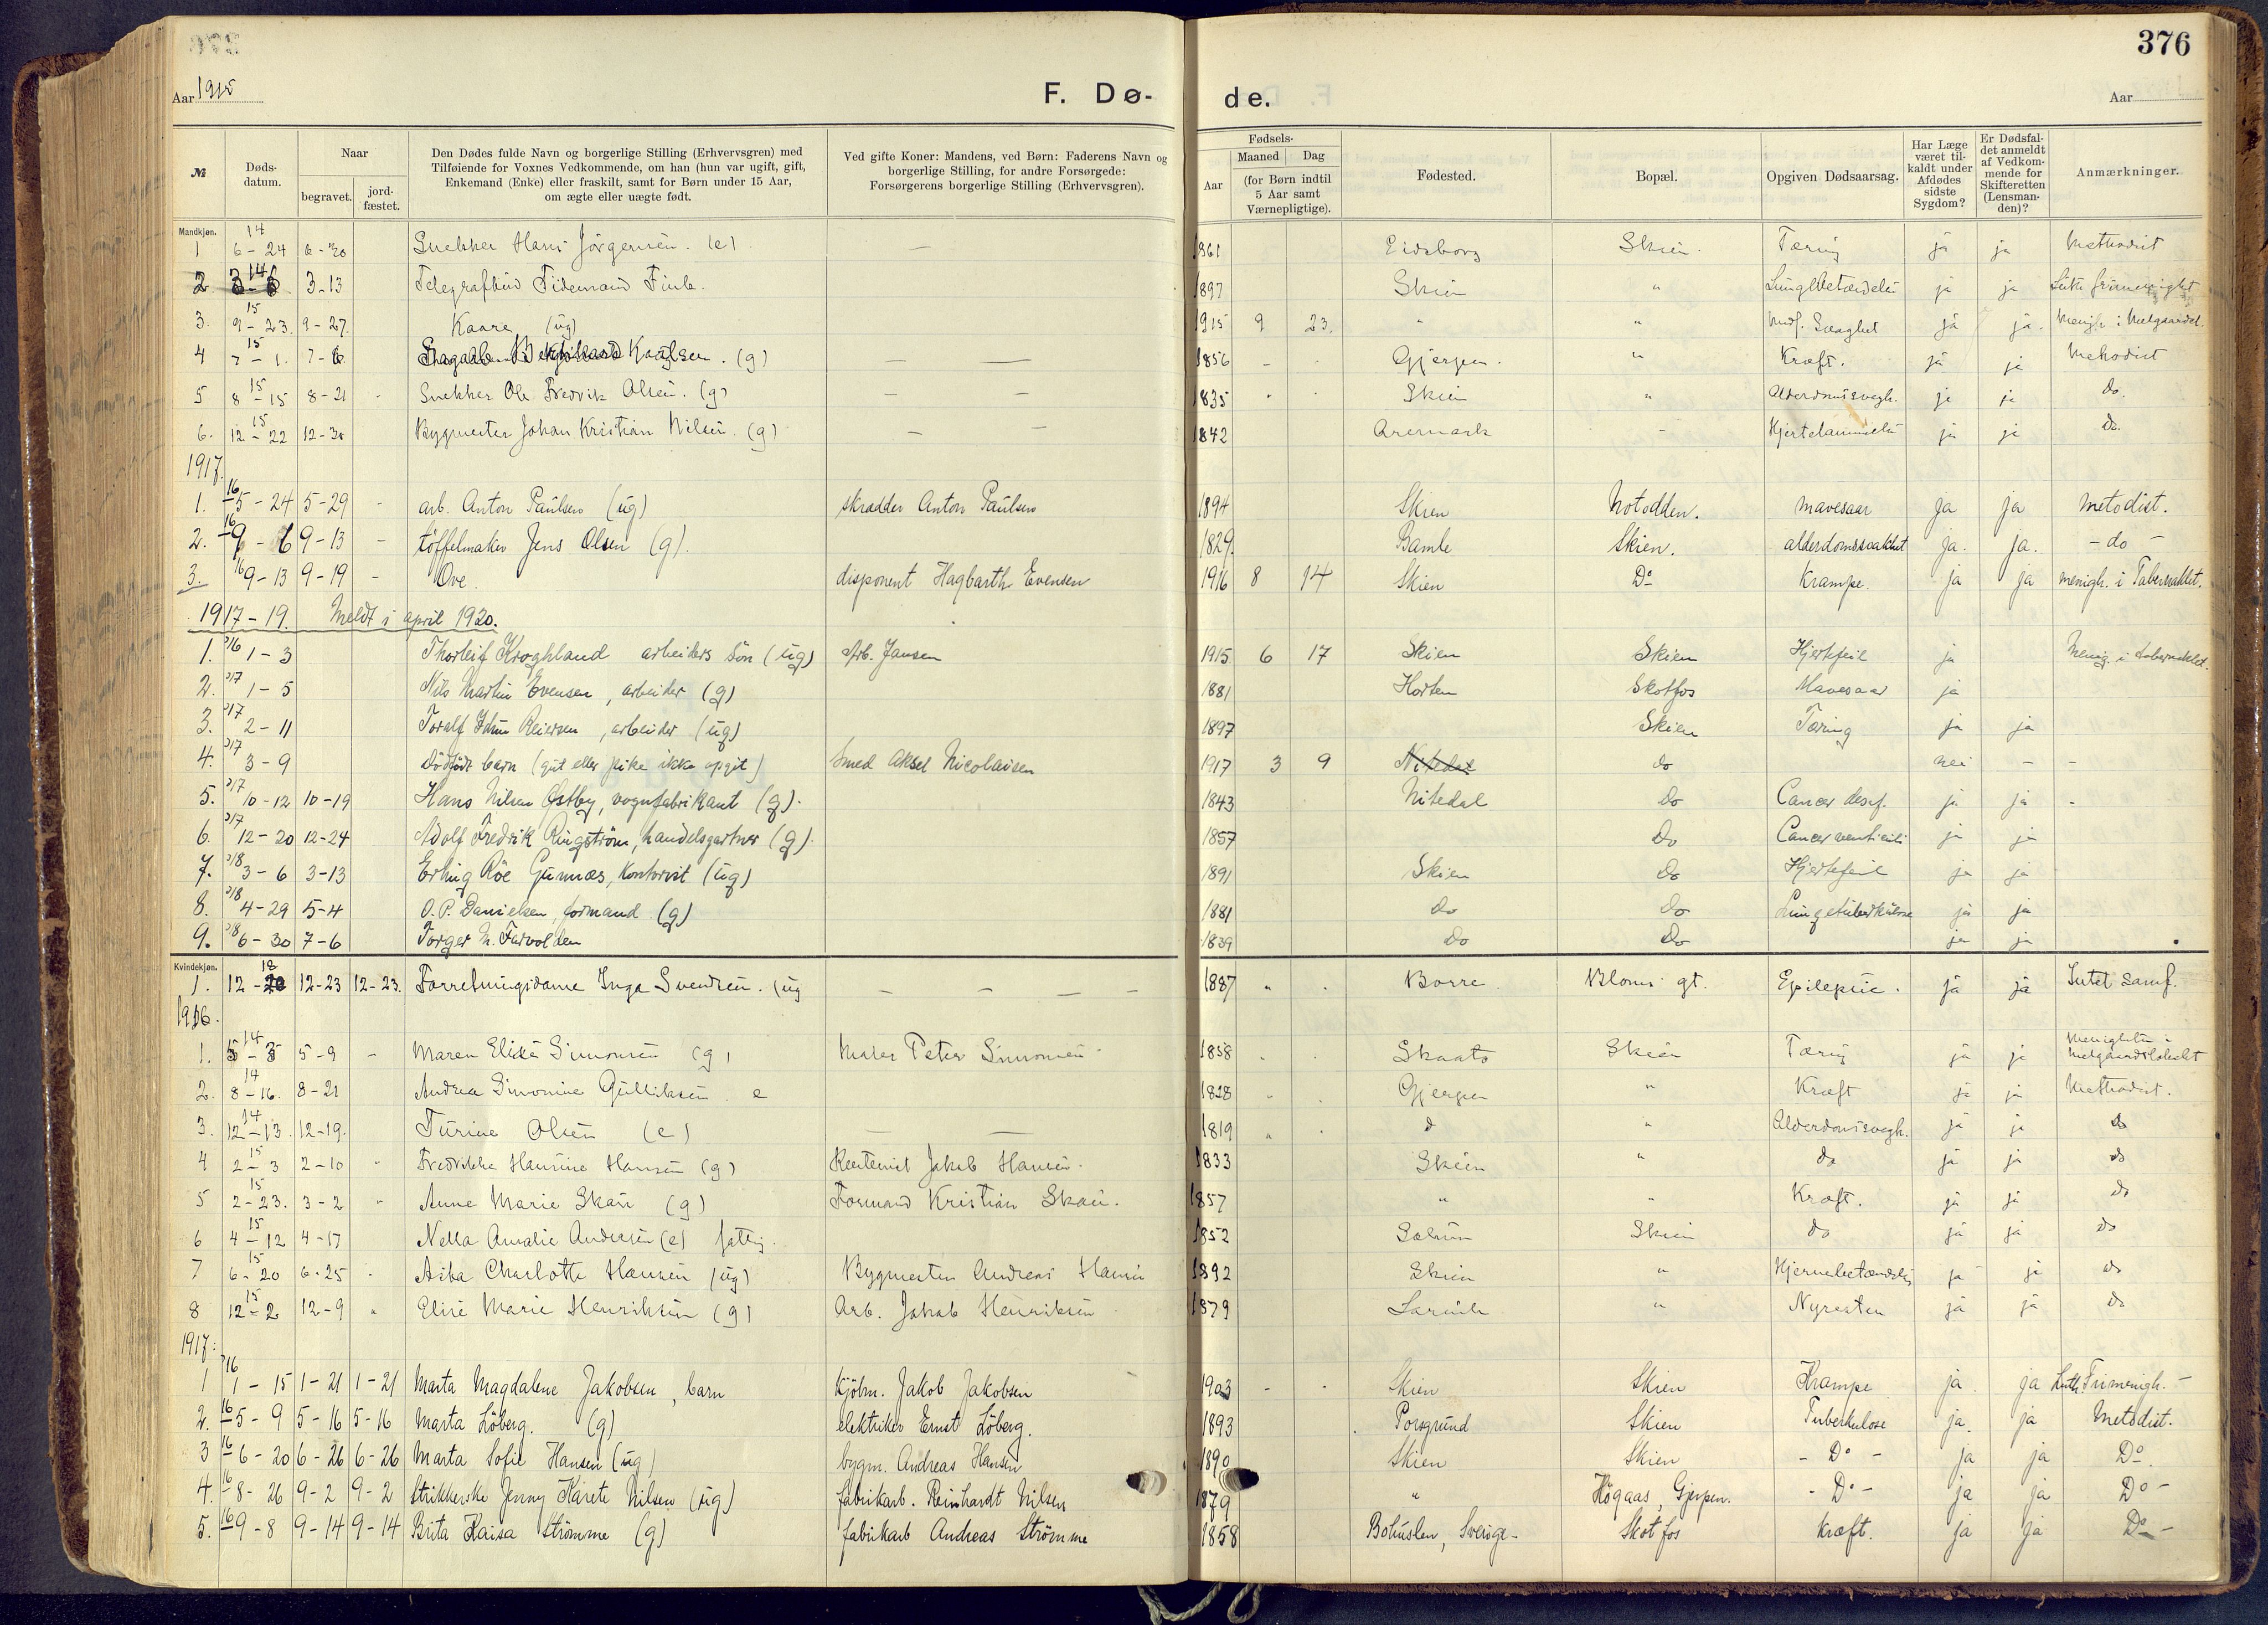 376
Aar 1915
F. Dø-
de.
Aar
№
Døds-datum.
Naar
begravet.
jord-fæstet.
Den Dødes fulde Navn og borgerlige Stilling (Erhvervsgren) med
Tilføiende for Voxnes Vedkommende, om han (hun var ugift, gift,
Enkemand (Enke) eller fraskilt, samt for Børn under 15 Aar,
om ægte eller uægte født.
Ved gifte Koner: Mandens, ved Børn: Faderens Navn og
borgerlige Stilling, for andre Forsørgede:
Forsørgerens borgerlige Stilling (Erhvervsgren).
Fødsels-
Aar
Maaned
Dag
(for Børn indtil
5 Aar samt
Værnepligtige).
Fødested.
Bopæl.
Opgiven Dødsaarsag.
Har Læge
været til-
kaldt under
Afdødes
sidste
Sygdom?
Er Dødsfal-
det anmeldt
af Vedkom-
mende for
Skifteretten
(Lensman-
den)?
Anmærkninger.
Mandkjøn.
1 14 6-24 6-30 Snekker Hans Jörgensen. (e) — 1861 Eidsborg Skien. Tæring ja ja Methodist
2. 14 3-13 Telegrafbud Tidemand Fink. 1897 Skien " ja ja
3. 15 9-23. 9-27. Kaare (ug) 1915 9 23. " " Medf. Svaghet ja ja.
4 15 7-1. Karlsen. (g) — — 1856 Gjerpen. " Kræft. ja ja Mehodist
5 15 8-15 8-21 Snekker Ole Fredrik Olsen. (g) — — 1835 Skien " Alderdomsvagh. ja ja do.
6. 15 12-22 12-30 Bygmester Johan Kristian Nilsen (g) — — 1842 Aremark " ja ja do.
1917.
1. 16 5-24 5-29 - arb. Anton Paulsen (ug) skrædder Anton Paulsen 1894 Skien Notodden. mavesaar ja ja metodist.
2. 16 9-6 9-13 - töffelmaker Jens Olsen (g). 1829. Bamle Skien. alderdomssvakhet ja. ja. - do -
3. 16 9-13 9-19 - Ove. disponent Hagbarth Evensen 1916 8 14 Skien Do Krampe. ja ja menigh. i Tabernaklet.
1917-19. Meldt i april 1920.
1. 16 1-3 Thorleif Kroghland arbeiders sön (ug) Arb. Jansen 1915 6 17 Skien Skien Hjertefeil ja Menig. i tabernaklet.
2. 17 1-5 Nils Martin Evensen, arbeider (g) 1881 Horten Skotfos Mavesaar ja
3. 17 2-11 Toralf Reiersen, arbeider (ug) 1897 Skien Tæring ja ja
4. 17 3-9 Dödfödt barn (gut eller pike ikke opgit) Smed Aksel Nicolaisen 1917 3 9 Nitedal do nei - -
5. 17 10-12 10-19 Hans Nilsen Østby, vognfabrikant (g). 1843 Nitedal Do Cancer ja ja -
6. 17 12-20 12-24 Adolf Fredrik Ringström, handelsgartner (g). 1857 Do Cancer ventriculi ja ja
7. 18 3-6 3-13 Erling Röe Gunnæs, Kontorist (ug) 1891 Skien Do Hjertefeil ja ja
8. 18 4-29 5-4 O.P. Danielsen, formand (g) 1881 Do Do Lungetuberkulose ja ja
9. 18 6-30 7-6 Torger N. Farvolden 1839 Do Do ja ja
Kvindekjøn.
1. 18 12-20 12-23 12-23. Forretningsdame Inga Svendsen. (ug — — — — 1887 " Borre. Bloms gt. Epilepsie. ja ja Intet samf.
1916.
1. 14 5-9 - Maren Elise Simonsen (g) Maler Peter Simonsen 1858 Skaatö Skien Tæring ja ja Menigheten i Melgaardslokalet
2. 14 8-16. 8-21 Andrea Simonine Gulliksen e 1828 Gjerpen " Kræft ja ja Methodist.
3. 14 12-13. 12-19. Turine Olsen (e) — — 1819 d " Alderdomsvagh. ja ja do
4 15 2-3 2-10 " Fredrikke Hansine Hansen (g) Rentenist Jakob Hansen. 1833 Skien " do ja ja do
5 15 2-23. 3-2 " Anne Marie Skau (g) Formand Kristian Skau. 1857 " " Kræft. ja ja do
6 15 4-12 4-17 Nella Amalie Andersen (e) fattig. 1852 Solum Skien do ja ja do
7 15 6-20 6-25 Asba Charlotte Hansen (ug) Bygmester Andreas Hansen 1892 Skien " Hjernebetændelse ja ja do
8 15 12-2 12-9 " Elise Marie Henriksen (g) Arb. Jakob Henriksen 1879 Larvik " ja ja do
1917:
1 16 1-15 1-21 1-21 Marta Magdalene Jakobsen, barn Kjöbm. Jakob Jakobsen 1903 - Skien Skien Krampe ja. ja Luth. Frimenigh. -
2. 16 5-9 5-16 5-16 Marta Löberg. (g) elektriker Ernst Löberg. 1893 Porsgrund Skien Tuberkulose ja. ja Metodist.
3 16 6-20 6-26 6-26 Marta Sofie Hansen (ug) bygm. Andreas Hansen 1890 Skien Skien - Do - ja ja Do.
4. 16 8-26 9-2 9-2 Strikkerske Jenny Karete Nilsen (ug.) fabrikarb. Reinhardt Nilsen 1879 " Högaas, Gjerpen. - Do - ja ja Do -
5. 16 9-8 9-14 9-14 Brita Kaisa Strömme (g) fabrikarb Andreas Strömme 1858 Bohuslen, Sverige - Skotfos kræft. ja ja Do -